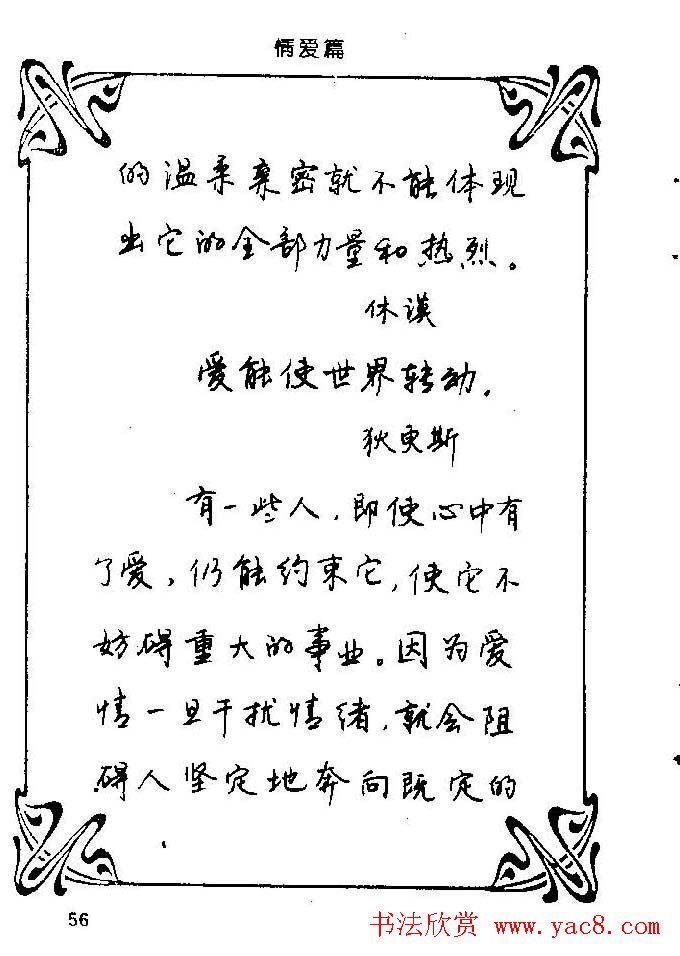 情爱篇
的温柔亲密就不能体现
出它的全部力量和热烈。
休谟
爱能使世界转动。
狄更斯
有一些人，即使心中有
了爱，仍能约束它，使它不
妨碍重大的事业。因为爱
情一旦干扰情绪，就会阻
碍人坚定地奔向既定的
56
书法欣赏 www.yac8.com